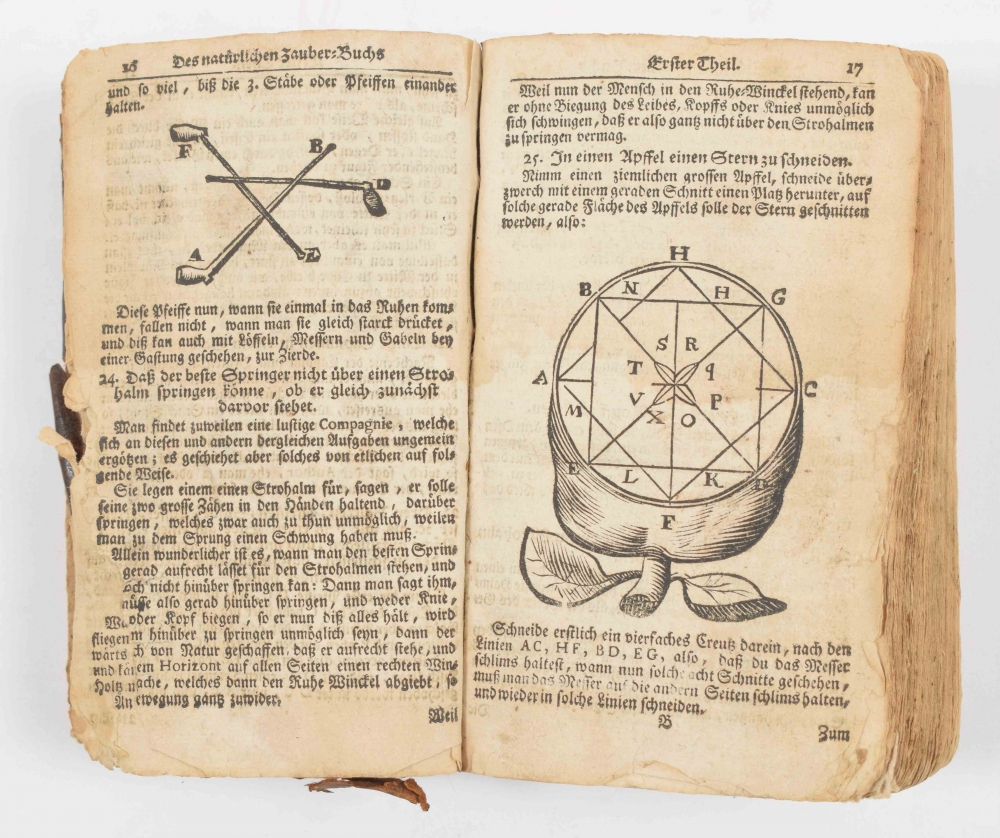 16 Des natürlichen Zauber-Buchs
und so viel, biß die 3. Stäbe oder Pfeiffen einander
halten.
F B
D
A E
Diese Pfeiffe nun, wann sie einmal in das Ruhen kom-
men, fallen nicht, wann man sie gleich starck drücket,
und diß kan auch mit Löffeln, Messern und Gabeln bey
einer Gastung geschehen, zur Zierde.
24. Daß der beste Springer nicht über einen Stro-
halm springen könne, ob er gleich zunächst
darvor stehet.
Man findet zuweilen eine lustige Compagnie, welche
sich an diesen und andern dergleichen Aufgaben ungemein
ergötzen; es geschiehet aber solches von etlichen auf fol-
gende Weise.
Sie legen einem einen Strohalm für, sagen, er solle
seine zwo grosse Zähen in den Händen haltend, darüber
springen, welches zwar auch zu thun unmöglich, weilen
man zu dem Sprung einen Schwung haben muß.
Allein wunderlicher ist es, wann man den besten Sprin-
gerad aufrecht lässet für den Strohalmen stehen, und
nicht hinüber springen kan: Dann man sagt ihm,
also gerad hinüber springen, und weder Knie,
oder Kopf biegen, so er nun diß alles hält, wird
fliegen hinüber zu springen unmöglich seyn, dann der
wärts von Natur geschaffen, daß er aufrecht stehe, und
und Horizont auf allen Seiten einen rechten Win-
Holtz mache, welches dann den Ruhe Winckel abgiebt, so
An ewegung gantz zuwider.
Weil
Erster Theil. 17
Weil nun der Mensch in den Ruhe-Winckel stehend, kan
er ohne Biegung des Leibes, Kopffs oder Knies unmöglich
sich schwingen, daß er also gantz nicht über den Strohalmen
zu springen vermag.
25. In einen Apffel einen Stern zu schneiden.
Nimm einen ziemlichen grossen Apffel, schneide über-
zwerch mit einem geraden Schnitt einen Platz herunter, auf
solche gerade Fläche des Apffels solle der Stern geschnitten
werden, also:
H
B N H G
S R
T q
A C
V P
M X O
E L K D
F
Schneide erstlich ein vierfaches Creutz darein, nach den
Linien AC, HF, BD, EG, also, daß du das Messer
schlims haltest, wann nun solche acht Schnitte geschehen,
muß man das Messer auf die andern Seiten schlims halten,
und wieder in solche Linien schneiden.
B
Zum